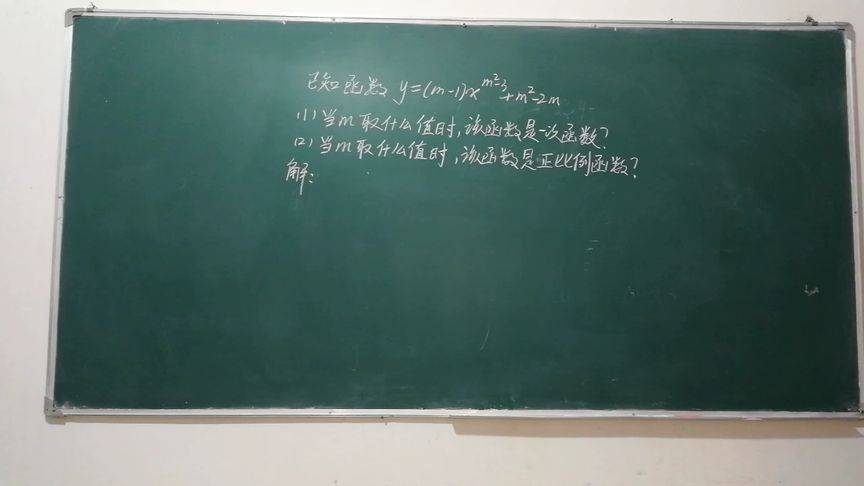 已知函数 y=(m-1)x^{m²-3}+m²-2m
(1) 当m取什么值时,该函数是一次函数?
(2) 当m取什么值时,该函数是正比例函数?
解: